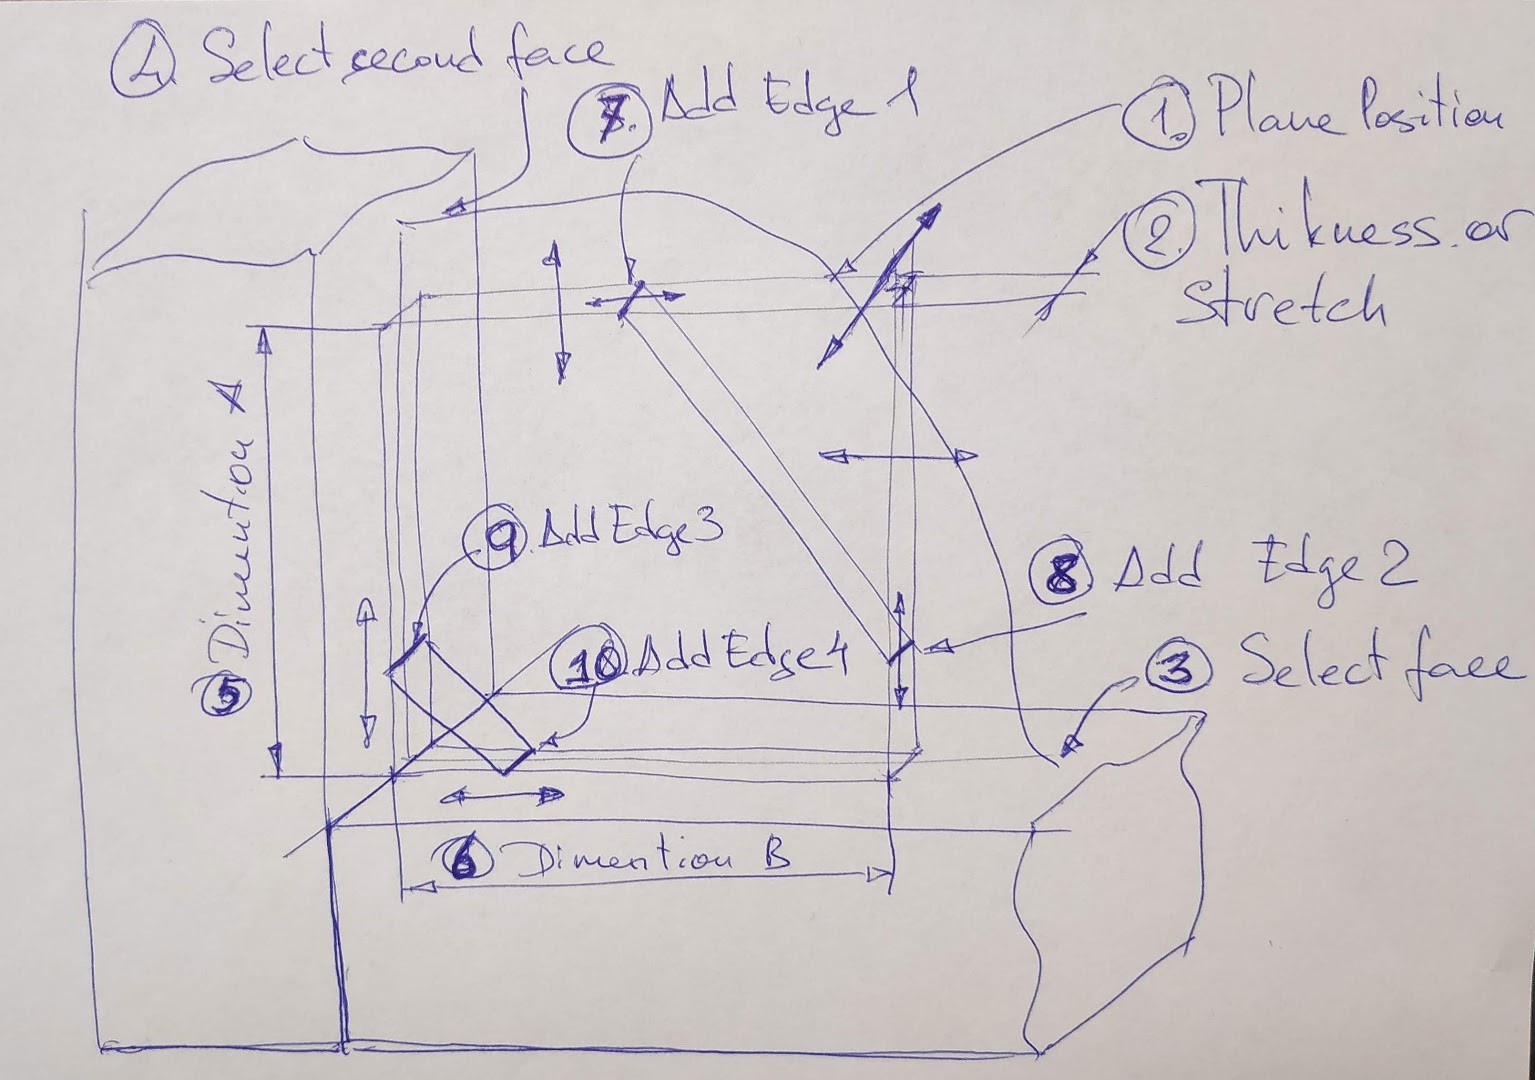 4. Select second face
7. Add Edge 1
1. Plane Position
2. Thikness or
Stretch
5 Dimention A
9. Add Edge 3
8. Add Edge 2
10 Add Edge 4
3 Select face
6 Dimention B